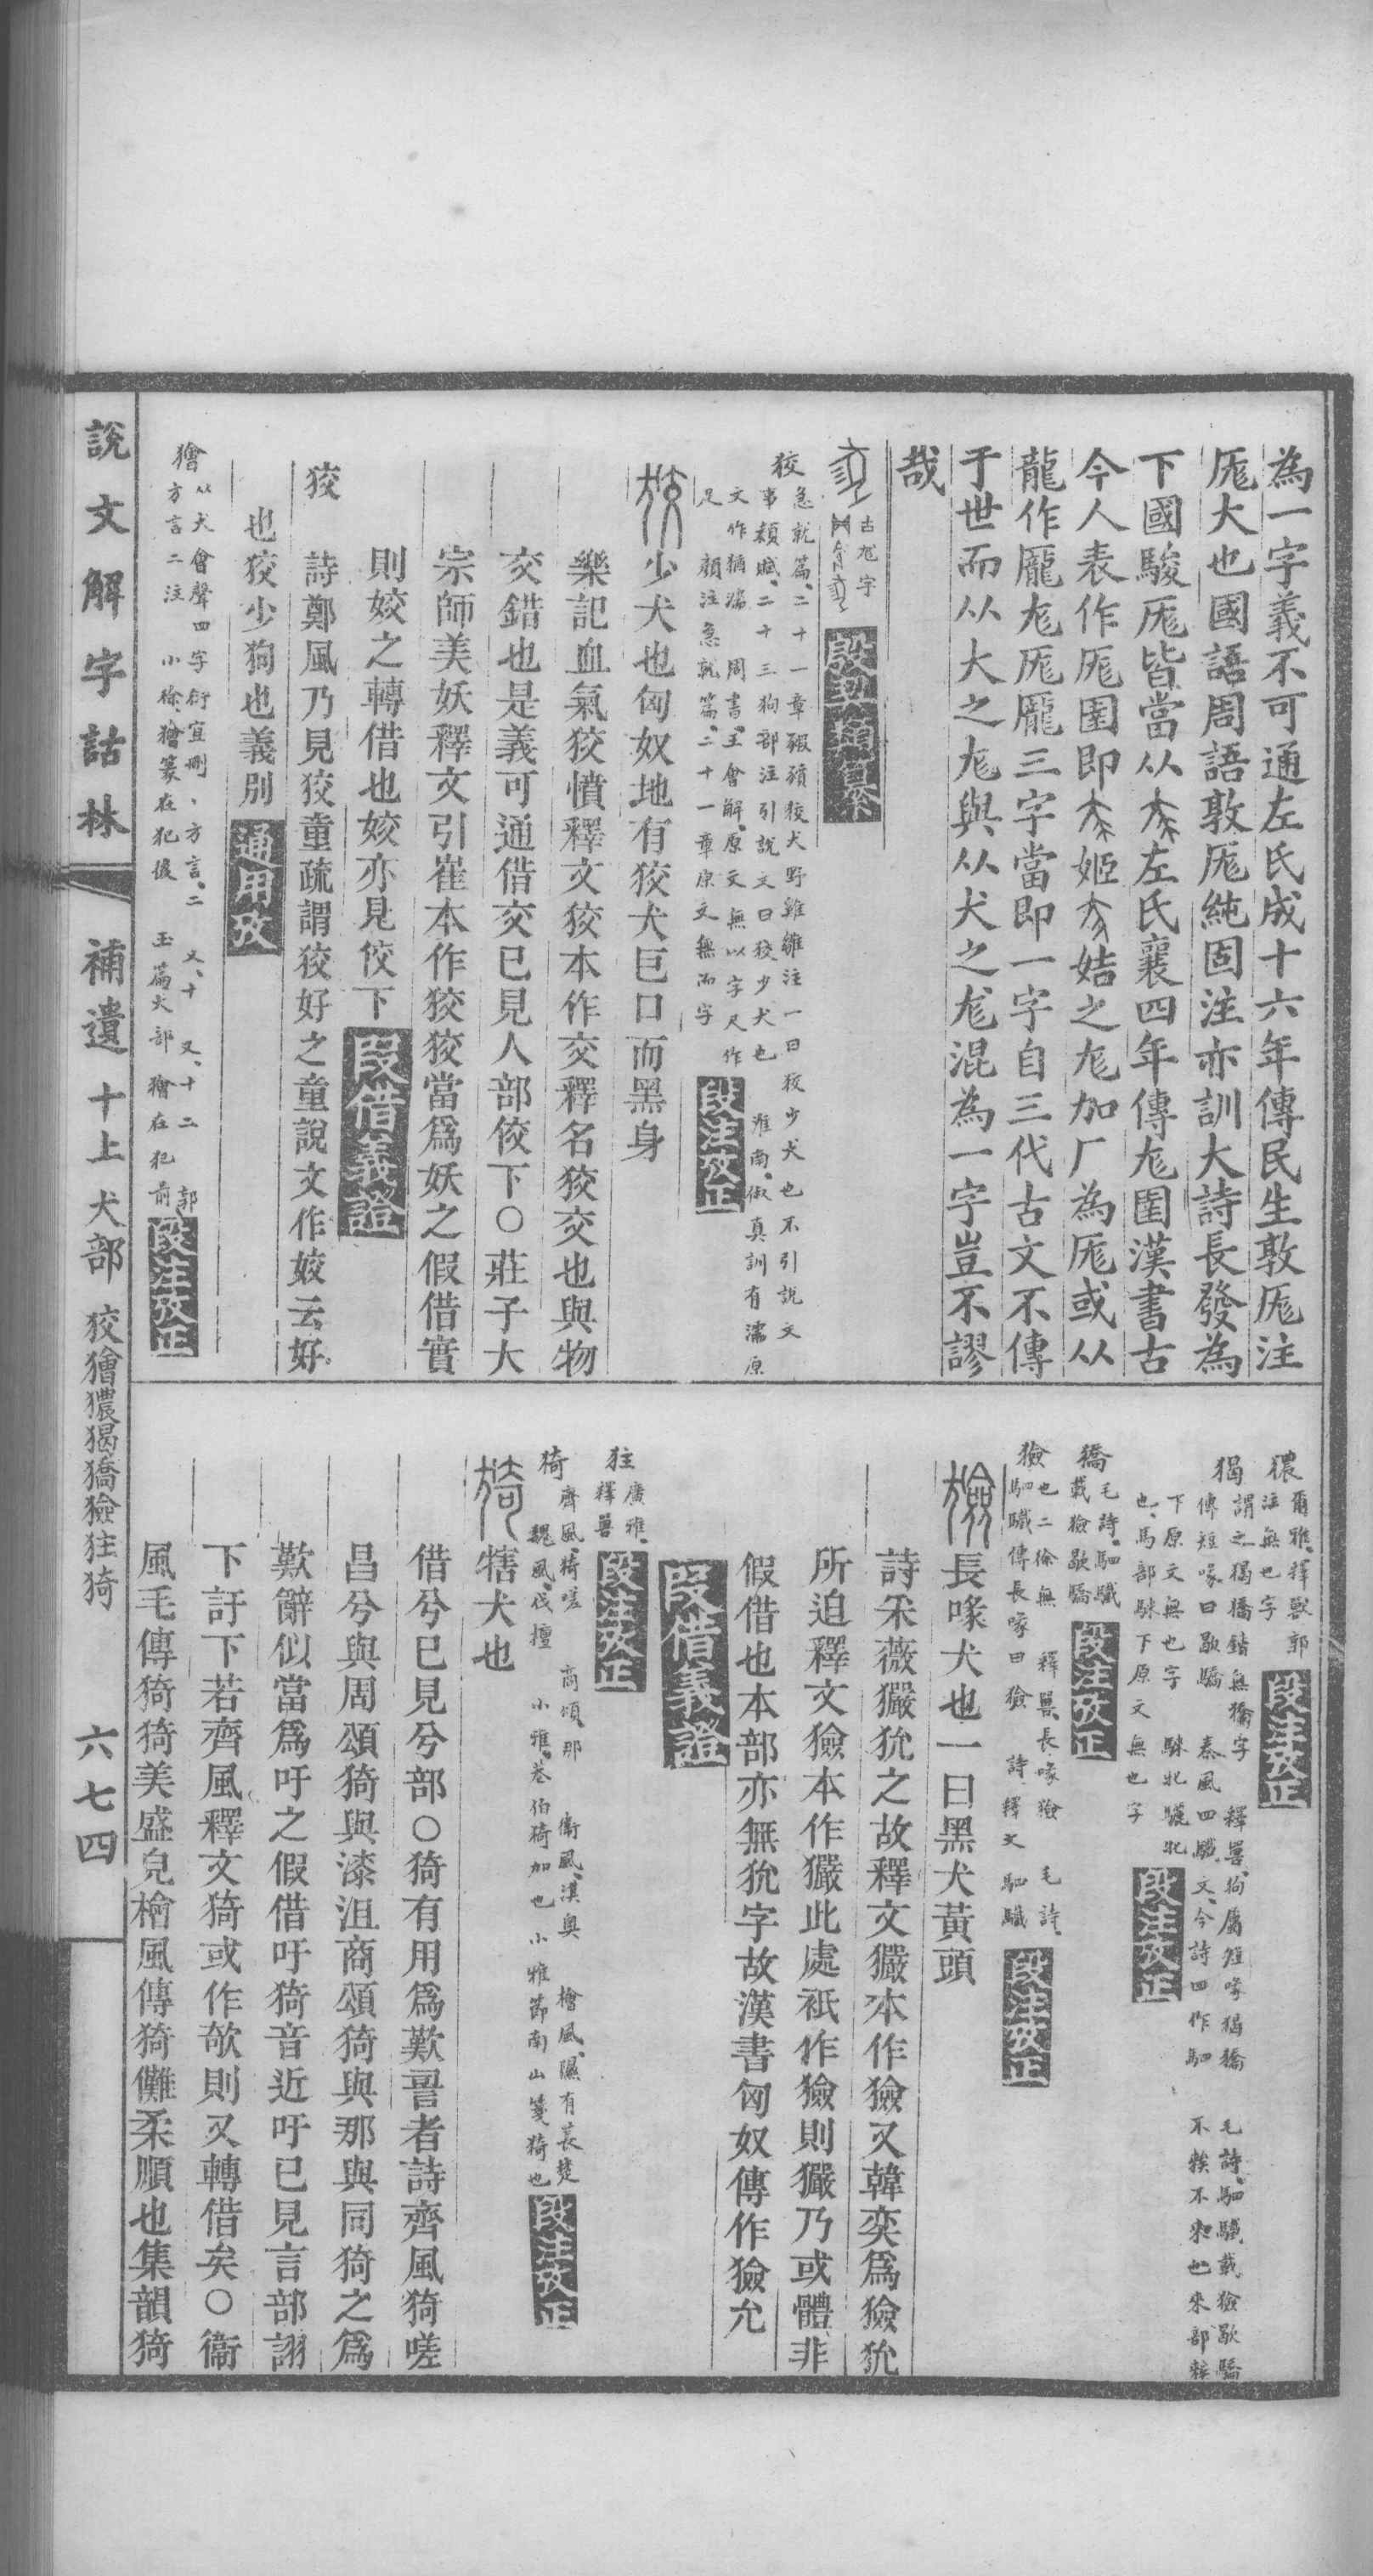 為一字義不可通左氏成十六年傳民生敦厖注
厖大也國語周語敦厖純固注亦訓大詩長發為
下國駿厖皆當从左氏襄四年傳尨圉漢書古
今人表作厖圉即姬姞之尨加厂為厖或从
龍作龎尨厖龎三字當即一字自三代古文不傳
于世而从大之尨與从犬之尨混為一字豈不謬
哉
古尨字
狡
急就篇二十一章豭豶狡犬野雞雛注一曰狡少犬也不引說文
事類賦二十三狗部注引說文曰狡少犬也 淮南俶真訓有濡原
文作蠕 周書王會解原文無以字尺作
足 顏注急就篇二十一章原文無而字
段注攷正
少犬也匈奴地有狡犬巨口而黑身
樂記血氣狡憤釋文狡本作交釋名狡交也與物
交錯也是義可通借交已見人部佼下○莊子大
宗師美妖釋文引崔本作狡狡當爲妖之假借實
則姣之轉借也姣亦見佼下
叚借義證
狡
詩鄭風乃見狡童疏謂狡好之童說文作姣云好
也狡少狗也義別
通用攷
獪
从犬會聲四字衍宜刪方言二 又十 又十二 郭
方言二注 小徐獪篆在犯後 玉篇犬部獪在犯前
段注攷正
獳
爾雅釋獸郭
注無也字
段注攷正
猲
謂之猲獢鍇無獢字 釋獸狗屬短喙猲獢 毛詩駟驖載獫歇驕
傳短喙曰歇驕 秦風四驖文今詩四作駟 不䅘不來也來部䅘
下原文無也字 騋牝驪牝
也馬部騋下原文無也字
段注攷正
獢
毛詩駟驖
載獫歇驕
段注攷正
獫
也二徐無 釋獸長喙獫 毛詩
駟驖傳長喙曰獫 詩釋文 駟驖
段注攷正
長喙犬也一曰黑犬黃頭
詩采薇玁狁之故釋文玁本作獫又韓奕爲獫狁
所迫釋文獫本作玁此處衹作獫則玁乃或體非
假借也本部亦無狁字故漢書匈奴傳作獫允
叚借義證
狂
廣雅
釋獸
段注攷正
猗
齊風猗嗟 商頌那 衞風淇奧 檜風隰有萇楚
魏風伐檀 小雅巷伯猗加也 小雅節南山箋猗也
段注攷正
犗犬也
借兮已見兮部○猗有用爲歎詈者詩齊風猗嗟
昌兮與周頌猗與漆沮商頌猗與那與同猗之爲
歎辭似當爲吁之假借吁猗音近吁已見言部詡
下訏下若齊風釋文猗或作欹則又轉借矣○衞
風毛傳猗猗美盛皃檜風傳猗儺柔順也集韻猗
說文解字詁林
補遺十上犬部 狡獪獳猲獢獫狂猗
六七四